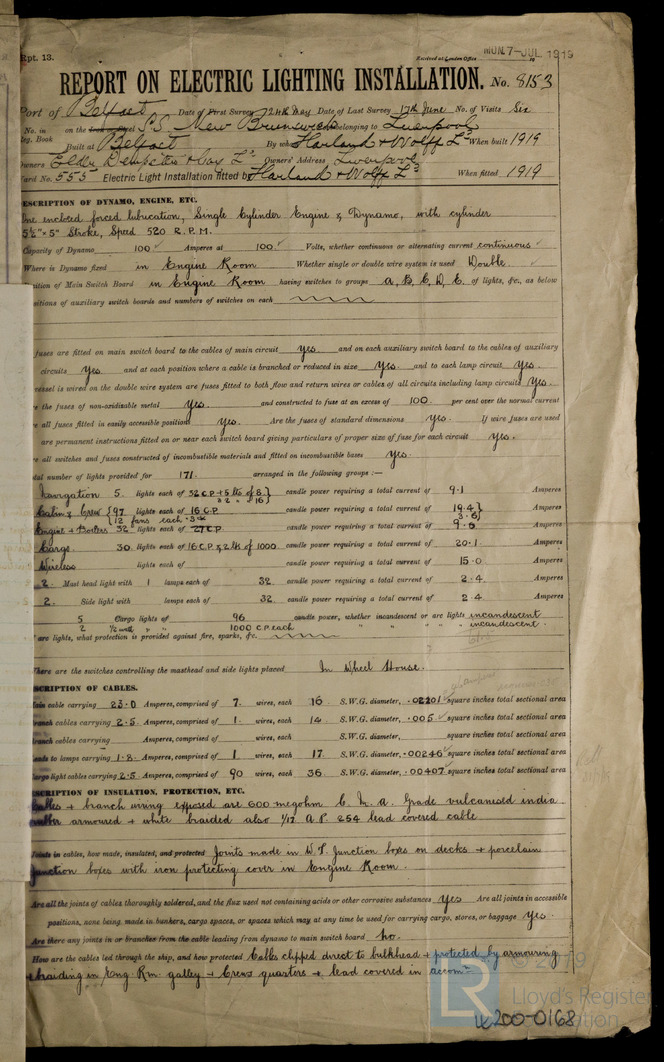 Rpt. 13.
Received at London Office
MON. 7-JUL 1919
REPORT ON ELECTRIC LIGHTING INSTALLATION. No. 8153
Port of Belfast Date of First Survey 24th May Date of Last Survey 17th June No. of Visits Six
No. in on the Iron or Steel S.S. New Brunswick belonging to Liverpool
Reg. Book Built at Belfast By whom Harland & Wolff Ld When built 1919
Owners Elder Dempster & Coy Ld Owners' Address Liverpool
Yard No. 555 Electric Light Installation fitted by Harland & Wolff Ld When fitted 1919
DESCRIPTION OF DYNAMO, ENGINE, ETC.
One enclosed forced lubrication, Single Cylinder Engine & Dynamo, with cylinder
5½" × 5" Stroke, Speed 520 R.P.M.
Capacity of Dynamo 100 Amperes at 100 Volts, whether continuous or alternating current continuous
Where is Dynamo fixed in Engine Room Whether single or double wire system is used Double
Position of Main Switch Board in Engine Room having switches to groups A, B, C, D, E. of lights, &c., as below
Positions of auxiliary switch boards and numbers of switches on each
fuses are fitted on main switch board to the cables of main circuit yes and on each auxiliary switch board to the cables of auxiliary
circuits yes and at each position where a cable is branched or reduced in size yes and to each lamp circuit yes
vessel is wired on the double wire system are fuses fitted to both flow and return wires or cables of all circuits including lamp circuits yes.
the fuses of non-oxidizable metal yes. and constructed to fuse at an excess of 100. per cent over the normal current
all fuses fitted in easily accessible positions yes. Are the fuses of standard dimensions yes. If wire fuses are used
are permanent instructions fitted on or near each switch board giving particulars of proper size of fuse for each circuit yes.
all switches and fuses constructed of incombustible materials and fitted on incombustible bases yes.
Total number of lights provided for 171. arranged in the following groups :—
Navigation 5. lights each of 32 C.P. + 5 lts of 8. candle power requiring a total current of 9.1 Amperes
2 " " 16
Cabin & Crew 97 lights each of 16 C.P. candle power requiring a total current of 19.4 Amperes
12 fans each .3A 3.6
Engine & Boilers 32 lights each of C.P. candle power requiring a total current of Amperes
Cargo. 30. lights each of 16 C.P. & 2 lts of 1000 candle power requiring a total current of 20.1 Amperes
Wireless lights each of candle power requiring a total current of 15.0 Amperes
2. Mast head light with 1 lamps each of 32 candle power requiring a total current of 2.4 Amperes
2. Side light with lamps each of 32 candle power requiring a total current of 2.4 Amperes
5 Cargo lights of 96 candle power, whether incandescent or arc lights incandescent
2 " " 1000 C.P. each " " " " incandescent.
If arc lights, what protection is provided against fire, sparks, &c.
Where are the switches controlling the masthead and side lights placed In Wheel House.
DESCRIPTION OF CABLES.
Main cable carrying 23.0 Amperes, comprised of 7. wires, each 16 S.W.G. diameter, .02201 square inches total sectional area
Branch cables carrying 2.5 Amperes, comprised of 1. wires, each 14 S.W.G. diameter, .005 square inches total sectional area
Branch cables carrying Amperes, comprised of wires, each S.W.G. diameter, square inches total sectional area
Leads to lamps carrying 1.8. Amperes, comprised of 1 wires, each 17. S.W.G. diameter, .00246 square inches total sectional area
Cargo light cables carrying 2.5 Amperes, comprised of 90 wires, each 36 S.W.G. diameter, .00407 square inches total sectional area
DESCRIPTION OF INSULATION, PROTECTION, ETC.
Cables & branch wiring exposed are 600 megohm C.M.A. Grade vulcanised india
rubber armoured & white braided also 1/17 A.P. 254 lead covered cable
Joints in cables, how made, insulated, and protected Joints made in W.T. Junction boxes on decks & porcelain
junction boxes with iron protecting cover in Engine Room.
Are all the joints of cables thoroughly soldered, and the flux used not containing acids or other corrosive substances yes Are all joints in accessible
positions, none being made in bunkers, cargo spaces, or spaces which may at any time be used for carrying cargo, stores, or baggage yes.
Are there any joints in or branches from the cable leading from dynamo to main switch board no.
How are the cables led through the ship, and how protected Cables clipped direct to bulkhead & protected by armouring
& braiding in Eng. Rm. galley & Crews quarters & lead covered in accomn.
© 2019
LR
Lloyd's Register
Foundation
W200-0168